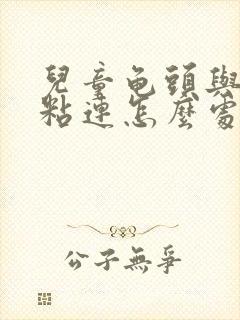 兒童龟頭與
粘連怎麼處
公子無爭